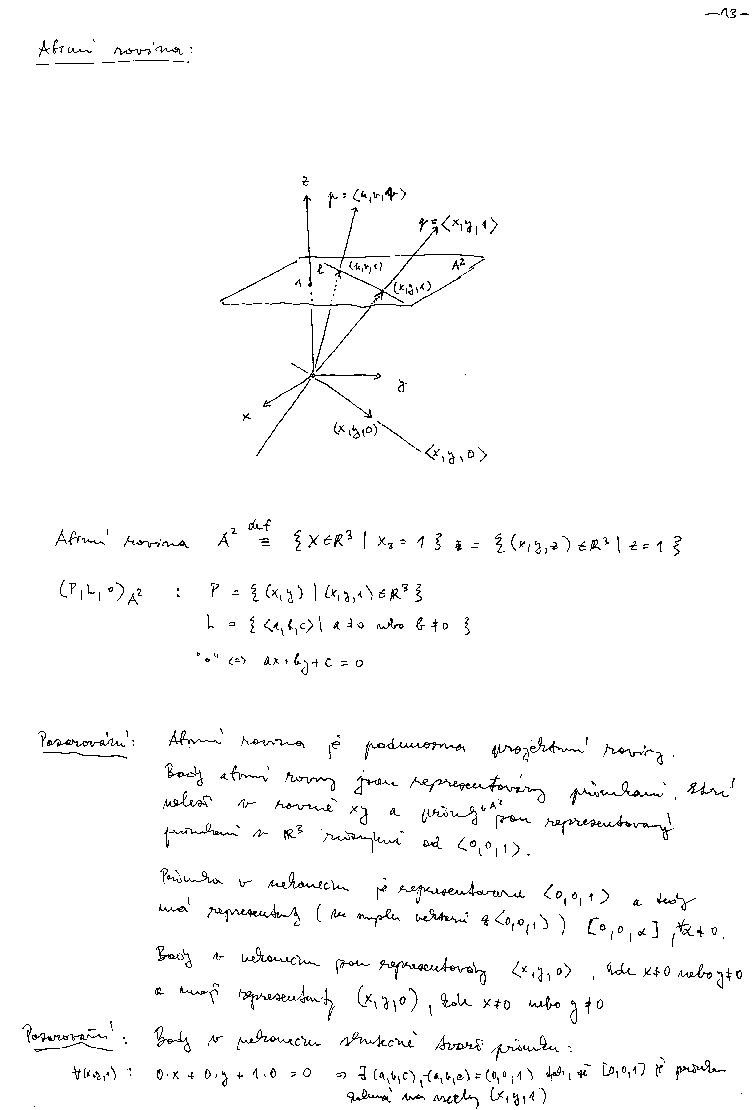 -13-
Afinní rovina:
z
p = <u,v,w>
q = <x,y,1>
l
(u,v,1)
A²
1
(x,y,1)
y
x
(x,y,0)
<x,y,0>
Afinní rovina A² def ≡ { X ∈ R³ | X₃ = 1 } = { (x,y,z) ∈ R³ | z = 1 }
(P, L, o)_A² : P = { (x,y) | (x,y,1) ∈ R³ }
L = { <a,b,c> | a ≠ 0 nebo b ≠ 0 }
"o" <=> ax + by + c = 0
Pozorování: Afinní rovina je podmnožina projektivní roviny.
Body afinní roviny jsou reprezentovány přímkami, které
neleží v rovině xy a přímky v A² jsou reprezentovány
přímkami v R³ různými od <0,0,1>.
Přímka v nekonečnu je reprezentovaná <0,0,1> a tedy
má reprezentanty (ve smyslu vektorů z <0,0,1>) [0,0,α], ∀α ≠ 0.
Body v nekonečnu jsou reprezentovány <x,y,0>, kde x≠0 nebo y≠0
a mají reprezentanty (x,y,0), kde x≠0 nebo y≠0
Pozorování: Body v nekonečnu skutečně tvoří přímku:
0·x + 0·y + 1·0 = 0 => ∃ (a,b,c), (a,b,c) = (0,0,1) že [0,0,1] je přímka